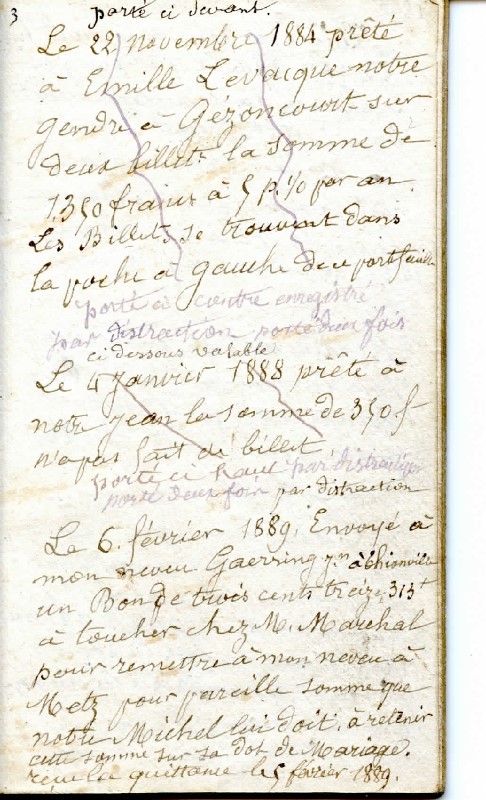 3
porté ci devant.
Le 22 novembre 1884 prêté
à Emille Levacque notre
gendre à Gézoncourt sur
deux billets la somme de
1350 francs à 5 p.% par an.
Les Billets se trouvent dans
la poche à gauche de ce portfeuille
porté ci contre enregistré
par distraction porté deux fois
ci dessous valable
Le 4 Janvier 1888 prêté à
notre Jean la somme de 350 f
n'a pas fait de billet
porté ci haut par distraction
porté deux fois par distraction
Le 6. février 1889, Envoyé à
mon neveu Gaersing à thionville
un Bon de trois cents treize 313 f
à toucher chez M. Marchal
pour remettre à mon neveu à
Metz pour pareille somme que
notre Michel lui doit, à retenir
cette somme sur sa dot de Mariage.
reçu la quittance le 5 février 1889.